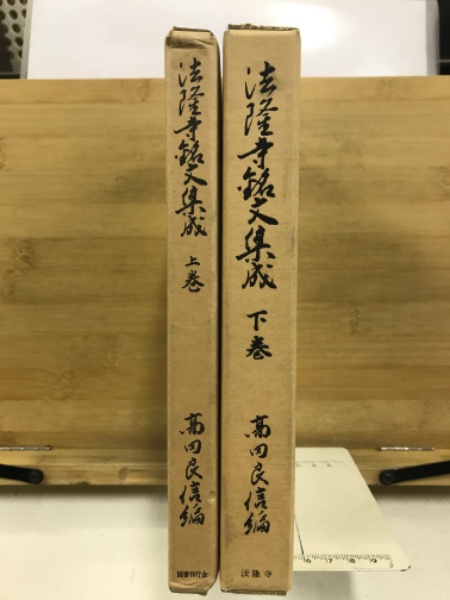 法隆寺銘文集成
上巻
高田良信編
国書刊行会
法隆寺銘文集成
下巻
高田良信編
法隆寺
16 17 18 19